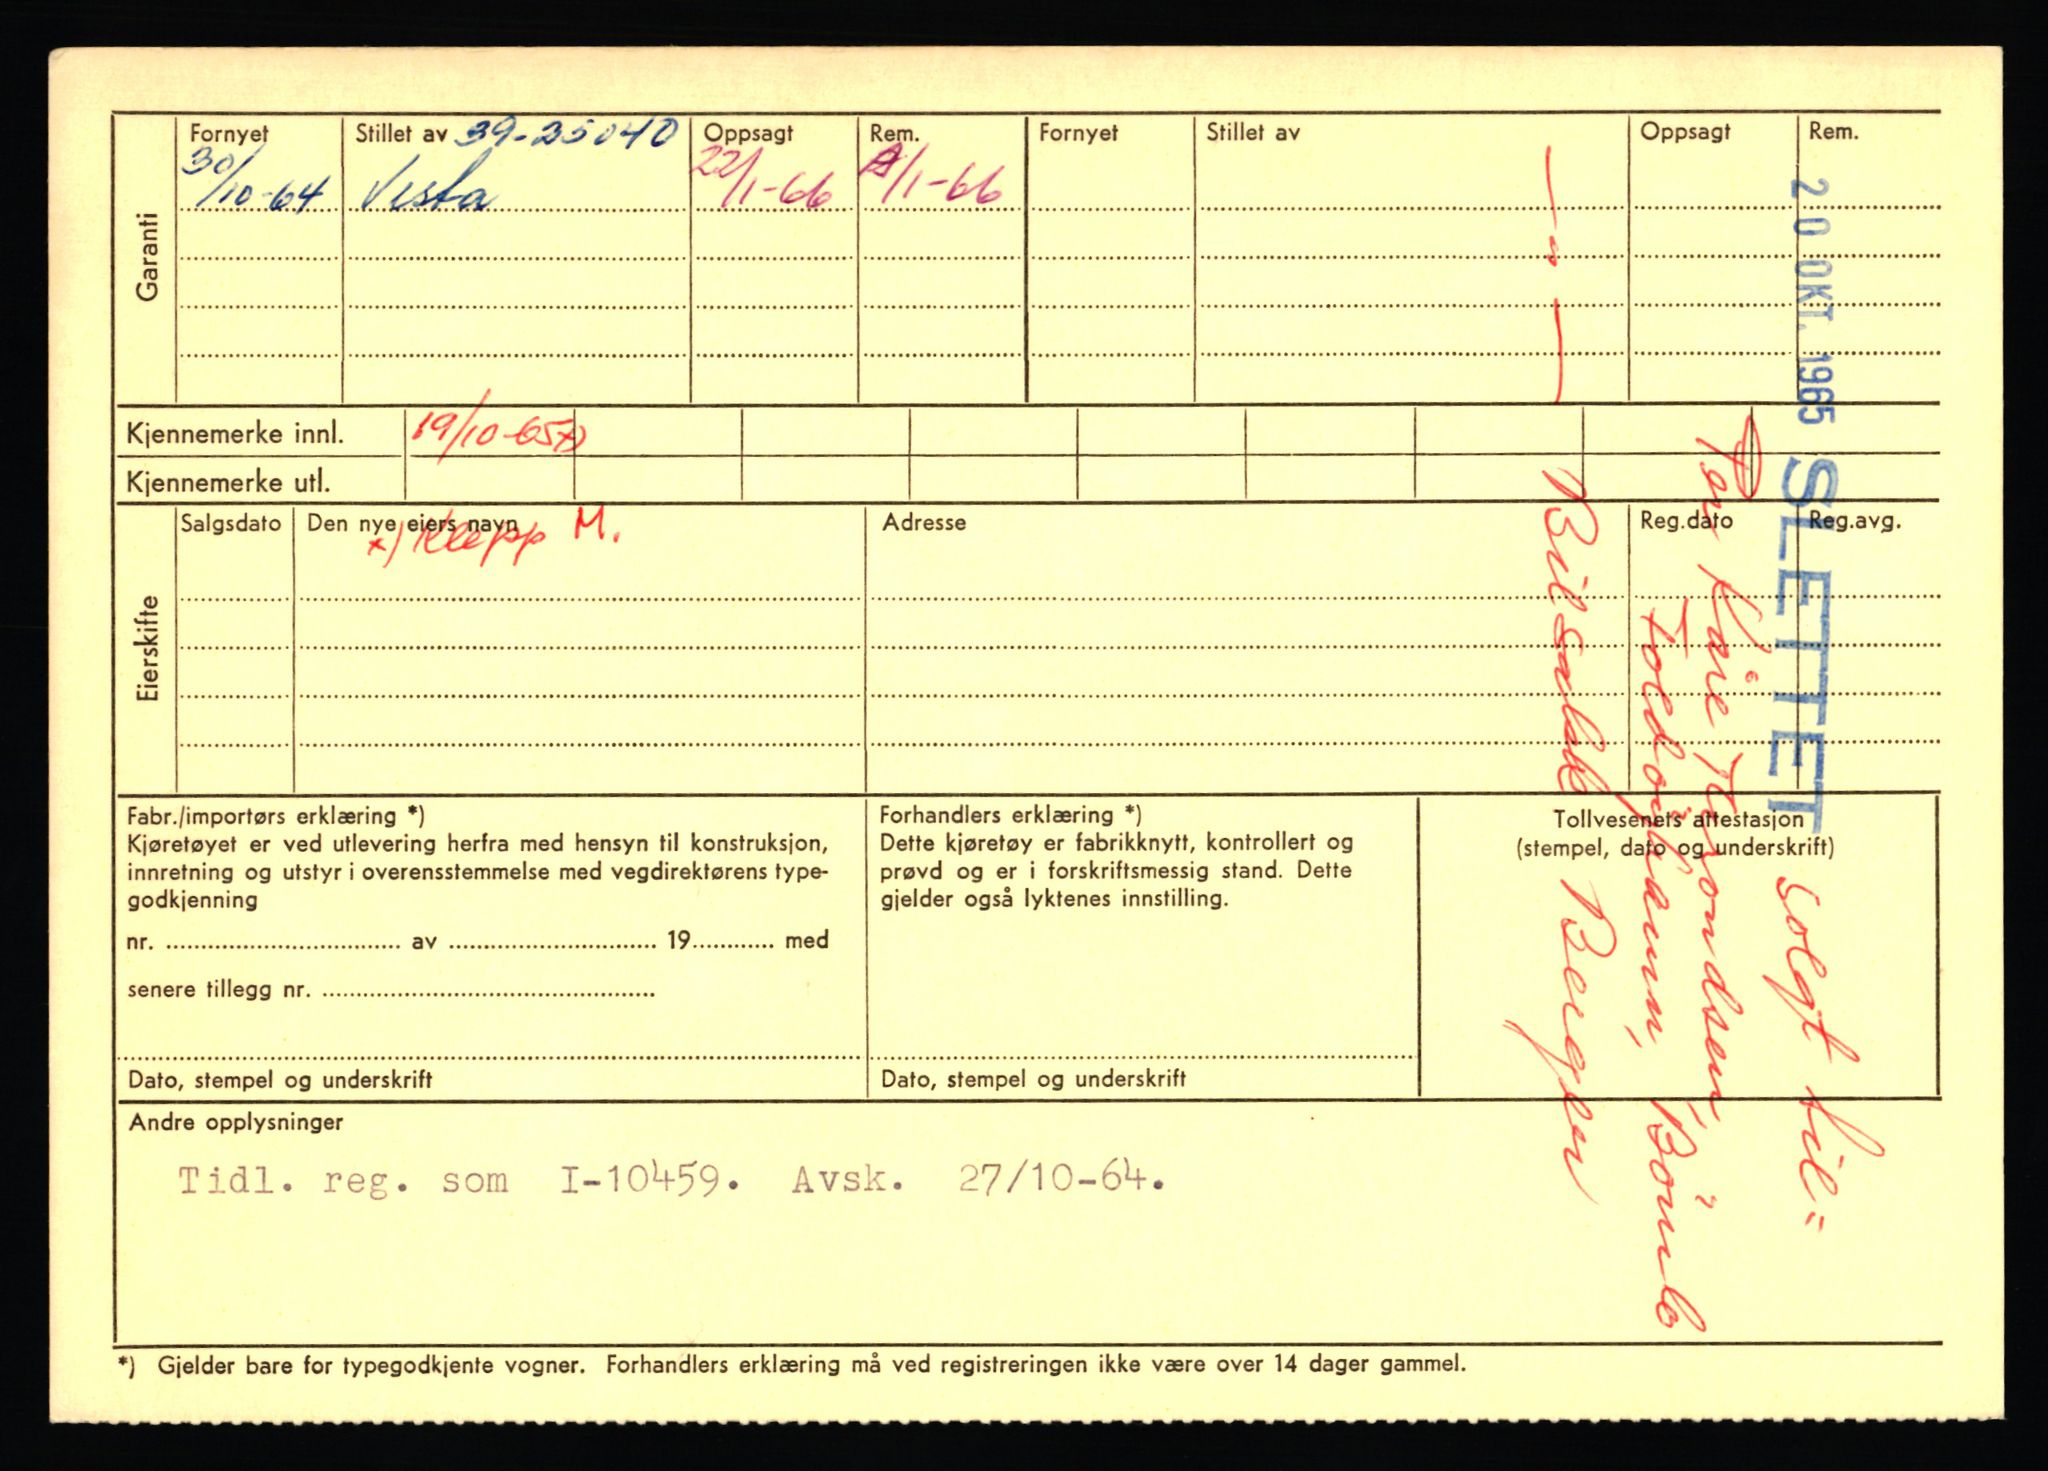 Garanti
Fornyet Stillet av 39-25040 Oppsagt Rem. Fornyet Stillet av Oppsagt Rem.
30/10-64 Vesta 22/1-66 /1-66
Kjennemerke innl. 19/10-65 x)
Kjennemerke utl.
Eierskifte
Salgsdato Den nye eiers navn Adresse Reg.dato Reg.avg.
x) Klepp M.
Fabr./importørs erklæring *)
Kjøretøyet er ved utlevering herfra med hensyn til konstruksjon,
innretning og utstyr i overensstemmelse med vegdirektørens type-
godkjenning
nr. ........ av ........ 19........ med
senere tillegg nr. ........
Dato, stempel og underskrift
Forhandlers erklæring *)
Dette kjøretøy er fabrikknytt, kontrollert og
prøvd og er i forskriftsmessig stand. Dette
gjelder også lyktenes innstilling.
Dato, stempel og underskrift
Tollvesenets attestasjon
(stempel, dato og underskrift)
Andre opplysninger
Tidl. reg. som I-10459. Avsk. 27/10-64.
*) Gjelder bare for typegodkjente vogner. Forhandlers erklæring må ved registreringen ikke være over 14 dager gammel.
20 OKT. 1965 SLETTET solgt til:
Kåre
Bömlo
— " — Bilsalk Bergen